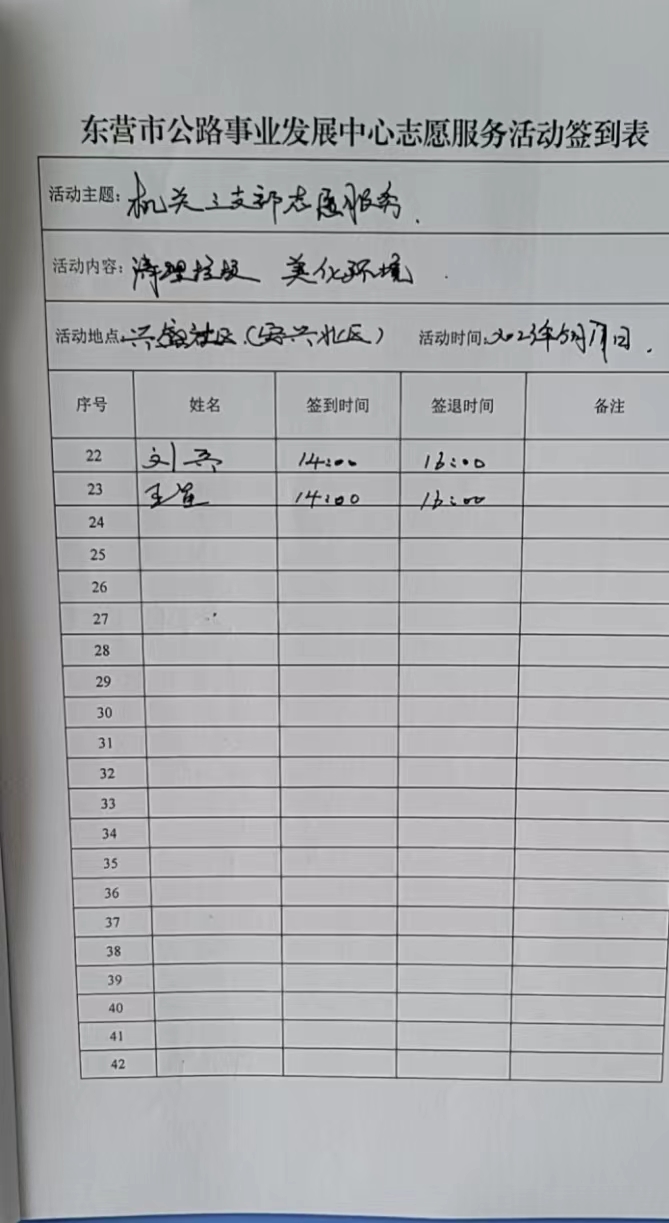 东营市公路事业发展中心志愿服务活动签到表
活动主题: 机关三支部志愿服务.
活动内容: 清理垃圾 美化环境.
活动地点: 社区(安兴北区) 活动时间: 2023年5月 日.
序号 姓名 签到时间 签退时间 备注
22 刘 14:00 16:00
23 王 14:00 16:00
24
25
26
27
28
29
30
31
32
33
34
35
36
37
38
39
40
41
42